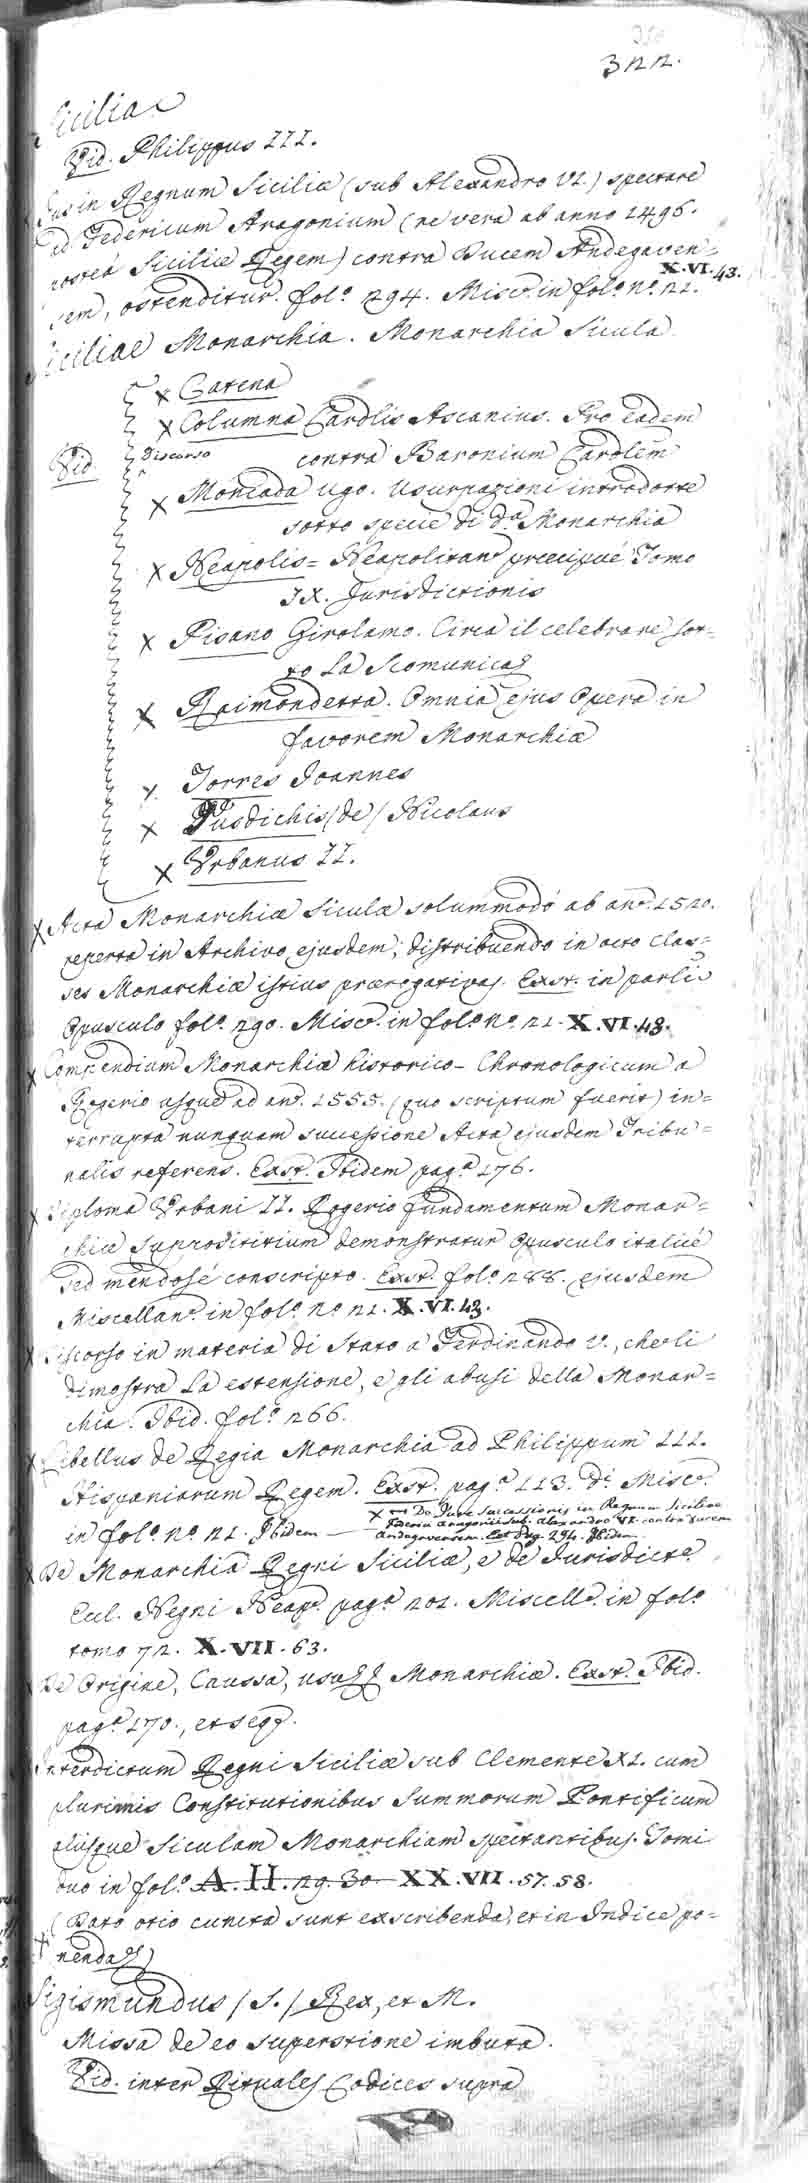 322.
Sicilia
Vid. Philippus III.
Jus in Regnum Siciliæ (sub Alexandro VI.) spectare
ad Federicum Aragonium (revera ab anno 1496.
postea Siciliæ Regem) contra Ducem Andegaven=
sem, ostenditur. fol.º 294. Misc.º in fol.º nº. 21. X.VI.43.
Siciliæ Monarchia. Monarchia Sicula
Vid
x Catena
x Columna Cardlis Ascanius. Pro eadem
Discorso contra Baronium Cardlem
x Moncada Ugo. Usurpazioni introdotte
sotto specie di d.ª Monarchia
x Neapolis = Neapolitan. præcipué Tomo
IX. Jurisdictionis
x Pisano Girolamo. Circa il celebrare sot=
to la Scomunica
x Raimondetta. Omnia ejus Opera in
favorem Monarchiæ
x Torres Joannes
x Tusdichis (de) Nicolaus
x Urbanus II.
x Acta Monarchiæ Siculæ solummodó ab an.º 1520.
reperta in Archivo ejusdem, distribuendo in octo clas=
ses Monarchiæ istius prærogativas. Exst. in parti
Opusculo fol.º 290. Misc.º in fol.º nº. 21. X.VI.43.
x Compendium Monarchiæ historico-Chronologicum a
Rogerio usque ad an.º 1555. (quo scriptum fuerit) in=
terrupta nunquam successione Acta ejusdem Tribu=
nalis referens. Exst. Ibidem pag.ª 176.
x Diploma Urbani II. Rogerio fundamentum Monar=
chiæ supposititium demonstratur opusculo italicé
sed mendosé conscripto. Exst. fol.º 288. ejusdem
Miscellan.º in fol.º nº. 21. X.VI.43.
x Discorso in materia di Stato a Ferdinando V., che li
dimostra la estensione, e gli abusi della Monar=
chia. Ibid. fol.º 266.
x Libellus de Regia Monarchia ad Philippum III.
Hispaniarum Regem. Exst. pag.ª 113. d.i Misc.º
in fol.º nº. 21. Ibidem —
x De Jure successionis in Regnum Siciliae
Federici Aragonii sub Alexandro VI. contra Ducem
Andegavensem. Est pag. 294. Ibidem.
x De Monarchia Regni Siciliæ, e de Jurisdict.e
Eccl. Regni Neap. pag.ª 201. Miscell.º in fol.º
tomo 72. X.VII.63.
De Origine, Caussa, usu Monarchiæ. Exst. Ibid.
pag.ª 170., et seqq.
Interdictum Regni Siciliæ sub Clemente XI. cum
plurimis Constitutionibus Summorum Pontificum
aliisque Siculam Monarchiam spectantibus. Tomi
duo in fol.º A.H.29.30. XX.VII.57.58.
(Dato otio cuncta sunt exscribenda, et in Indice po=
+ nenda)
Sigismundus (S.) Rex, et M.
Missa de eo superstione imbuta.
Vid. inter Rituales Codices supra